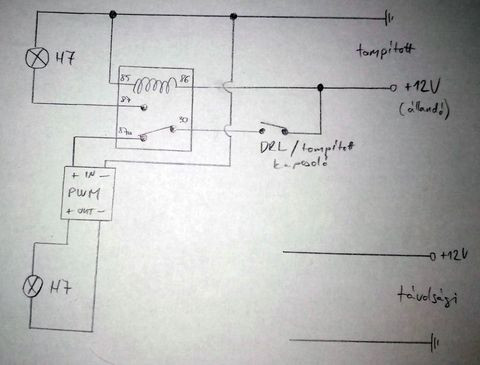 H7
tompított
85
86
87
+12V
(állandó)
30
87a
DRL/tompított
kapcsoló
+ IN -
PWM
+ OUT -
H7
+12V
távolsági